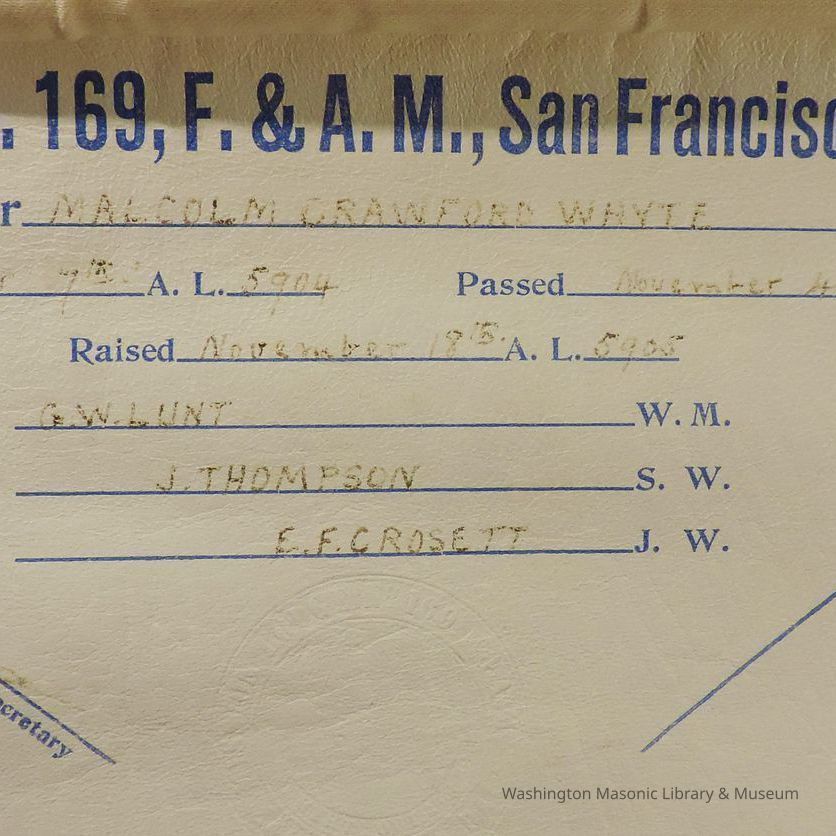 . 169, F. & A. M., San Francisco
r MALCOLM CRAWFORD WHYTE
7th A. L. 5904 Passed November 4
Raised November 18th A. L. 5905
G.W. LUNT W. M.
J. THOMPSON S. W.
E. F. CROSETT J. W.
ecretary
Washington Masonic Library & Museum